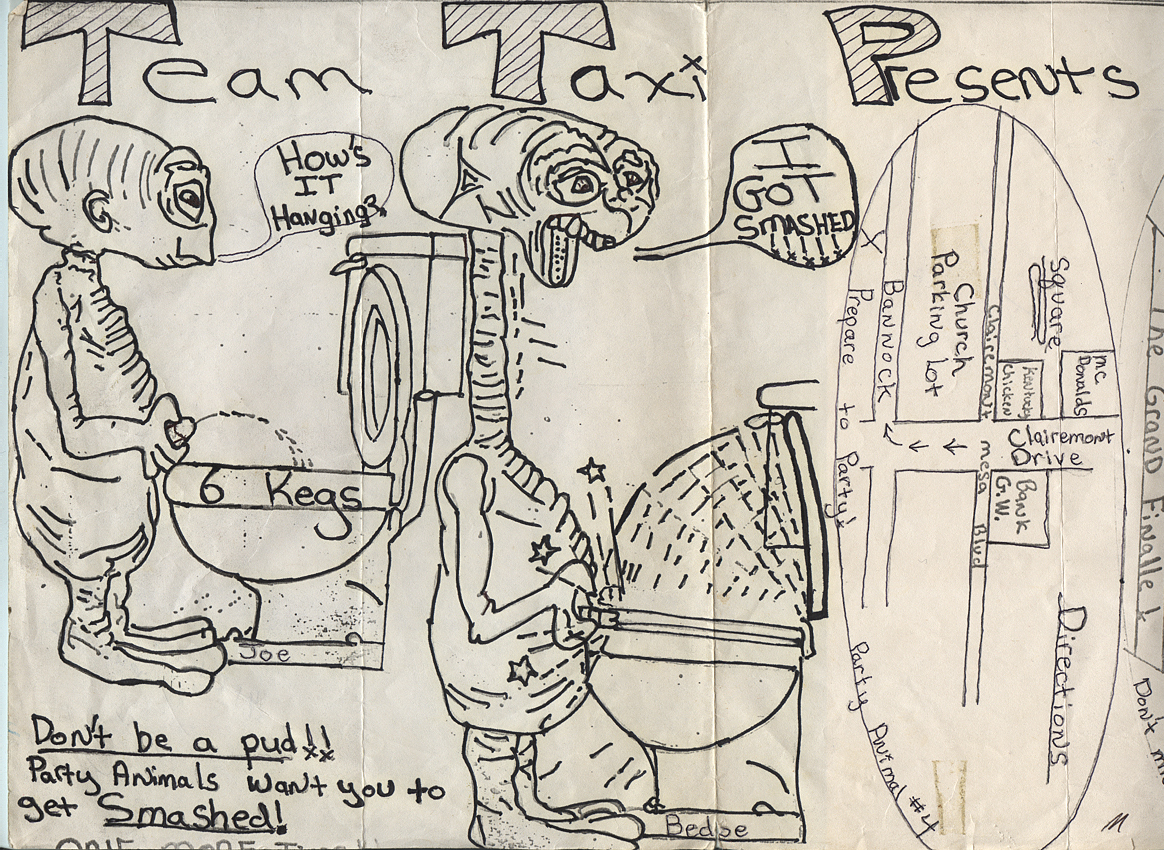 Team Taxi Presents
How's
IT
Hanging?
IT
GOT
SMASHED
6 Kegs
Joe
Bedoe
Don't be a pud!!
Party Animals want you to
get Smashed!
ONE MORE TIME
X
Prepare to Party!
Party Animal #4
Bannock
Church
Parking Lot
Clairemont
Mesa Blvd
Square
Kentucky
Chicken
Mc
Donalds
Clairemont
Drive
Bank
G.W.
Directions
The Grand Finalle!
Don't